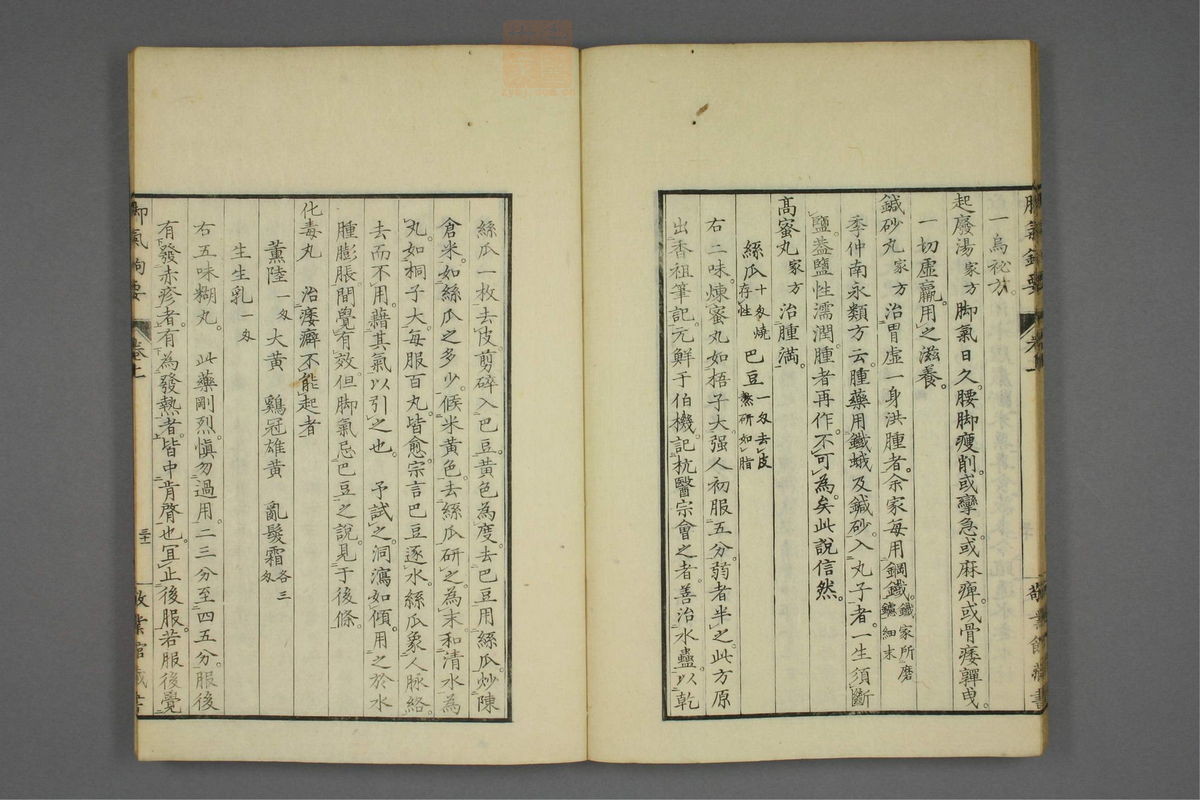 一烏祕方。
起廢湯家方 脚氣日久。腰脚瘦削。或攣急。或麻痺。或骨痿軃曳。
一切虛羸。用之滋養。
鍼砂丸家方 治胃虛一身洪腫者。余家每用鋼鐵。鐵家所磨鐵細末
季仲南永類方云。腫藥用鐵蛾及鍼砂。入丸子者。一生須斷
鹽。葢鹽性濡潤。腫者再作。不可為矣。此說信然。
高密丸家方 治腫滿。
絲瓜十匁燒存性 巴豆一匁去皮熬研如脂
右二味。煉蜜丸如梧子大。强人初服五分。弱者半之。此方原
出香祖筆記。元鮮于伯機記。杭醫宗會之者。善治水蠱。以乾
絲瓜一枚。去皮剪碎。入巴豆黃色為度。去巴豆用絲瓜炒陳
倉米。如絲瓜之多少。候米黃色。去絲瓜研之。為末和清水為
丸。如桐子大。每服百丸。皆愈。宗言巴豆逐水。絲瓜象人脉絡。
去而不用。藉其氣以引之也。 予試之。洞瀉如傾。用之於水
腫膨脹間覺有效。但脚氣忌巴豆之說。見于後條。
化毒丸 治痿癖不能起者
薰陸一匁 大黃 鷄冠雄黃 亂髮霜各三匁
生生乳一匁
右五味糊丸。 此藥剛烈。愼勿過用。二三分至四五分。服後
有發赤疹者。有為發熱者。皆中肯膂也。宜止後服。若服後覺
脚氣鉤要 卷上 敬業館藏書